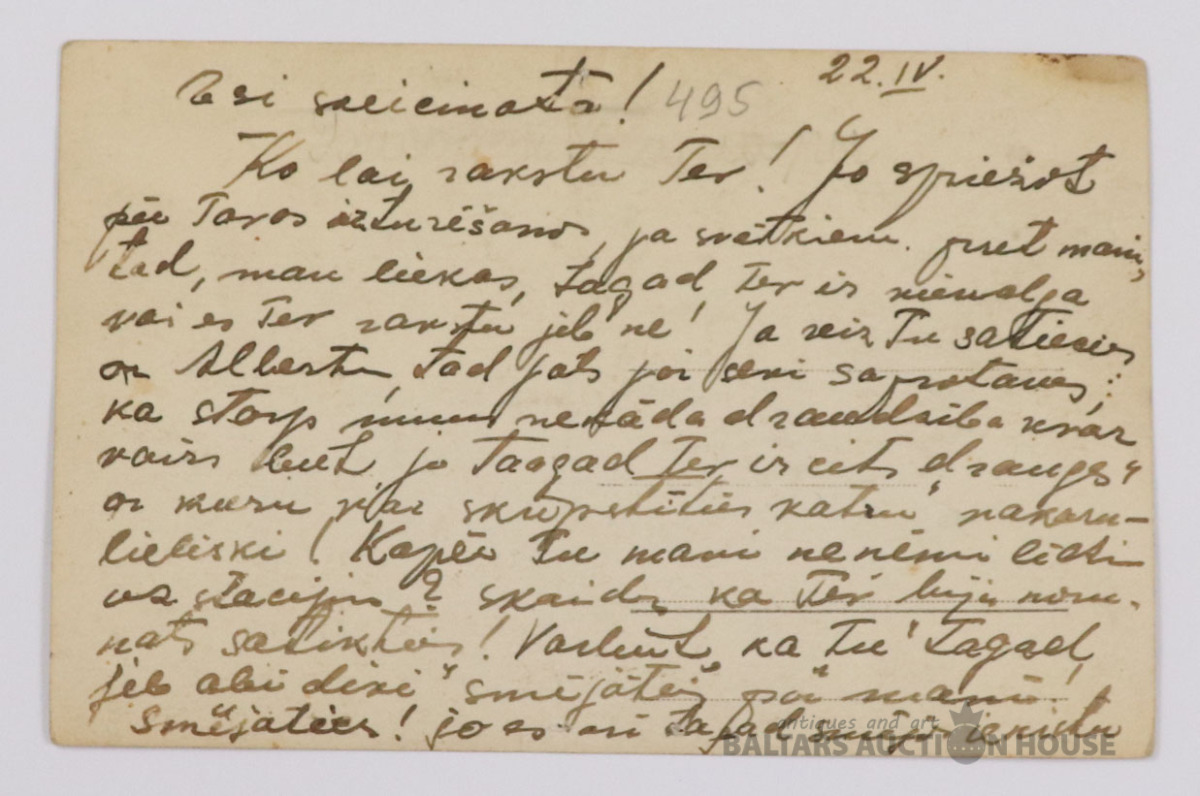 22.IV.
Esi sveicināta! 495
Ko lai rakstu Tev! Jo spriežot
pēc Tavas izturēšanos, ja svētkiem. pret mani,
tad, man liekas, tagad Tev ir vienalga
vai es Tev rakstu jeb ne! Ja reiz Tu saticies
ar Albertu, tad jāts joi sevi saprotams;
ka starp mums nekāda draudzība nevar
vairs būt, jo Taagad Tev ir cits draugs"
ar kuru var skūpstīties katru "vakaru-
lieliski! Kapēc Tu mani neņēmi līdzi
uz staciju? skaidrs ka Tev bija noru-
nāts satikties! Varbūt, ka Tu tagad
jeb abi divi "smējāties par" mani
smējaties! jo es arī tagad
antiques and art
BALTARS AUCTION HOUSE